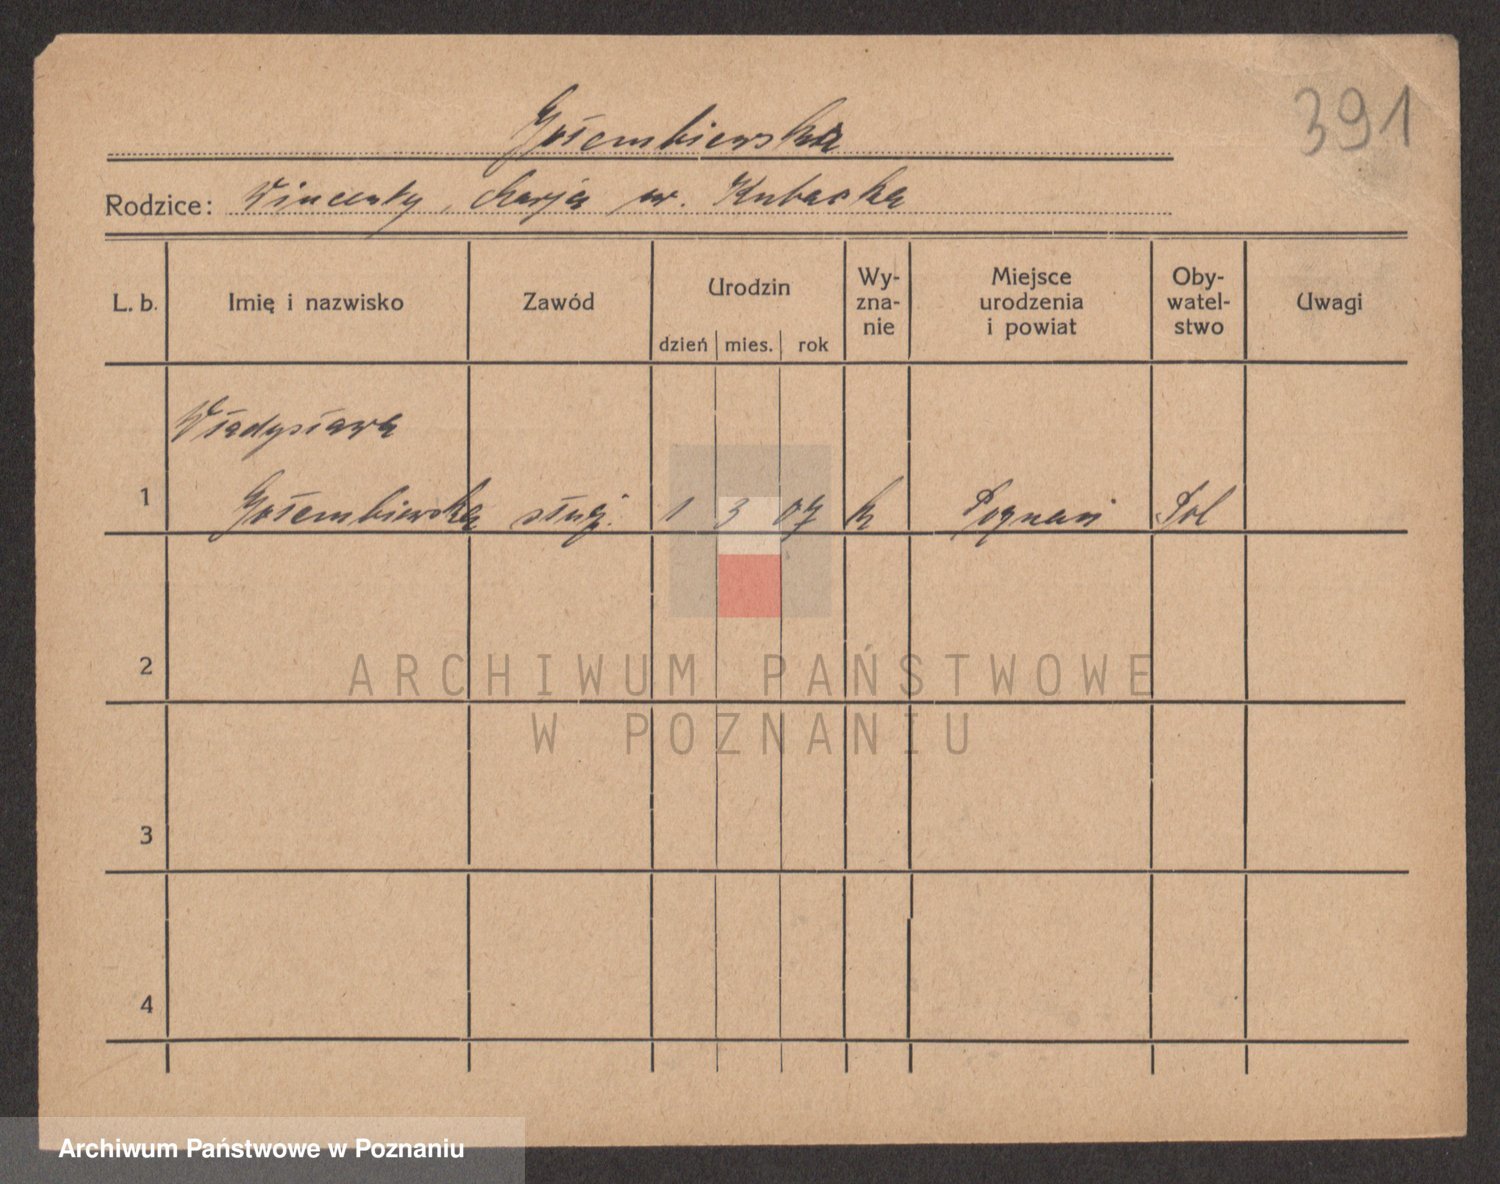 391
Gołembiewska
Rodzice: Wincenty, Marja ur. Kubacka
L. b.
Imię i nazwisko
Zawód
Urodzin
dzień mies. rok
Wy-
zna-
nie
Miejsce
urodzenia
i powiat
Oby-
watel-
stwo
Uwagi
Władysława
1 Gołembiewska służ. 1 3 07 k Poznań Pol
2
3
4
ARCHIWUM PAŃSTWOWE
W POZNANIU
Archiwum Państwowe w Poznaniu